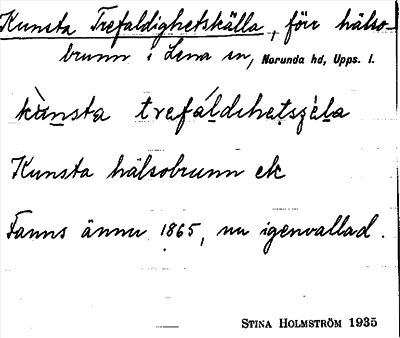 Kunsta Trefaldighetskälla, förr hälso-
brunn i Lena sn, Norunda hd, Upps. l.
kùnsta trefáldıhetsɕè̩la
Kunsta hälsobrunn ek
Fanns ännu 1865, nu igenvallad.
STINA HOLMSTRÖM 1935